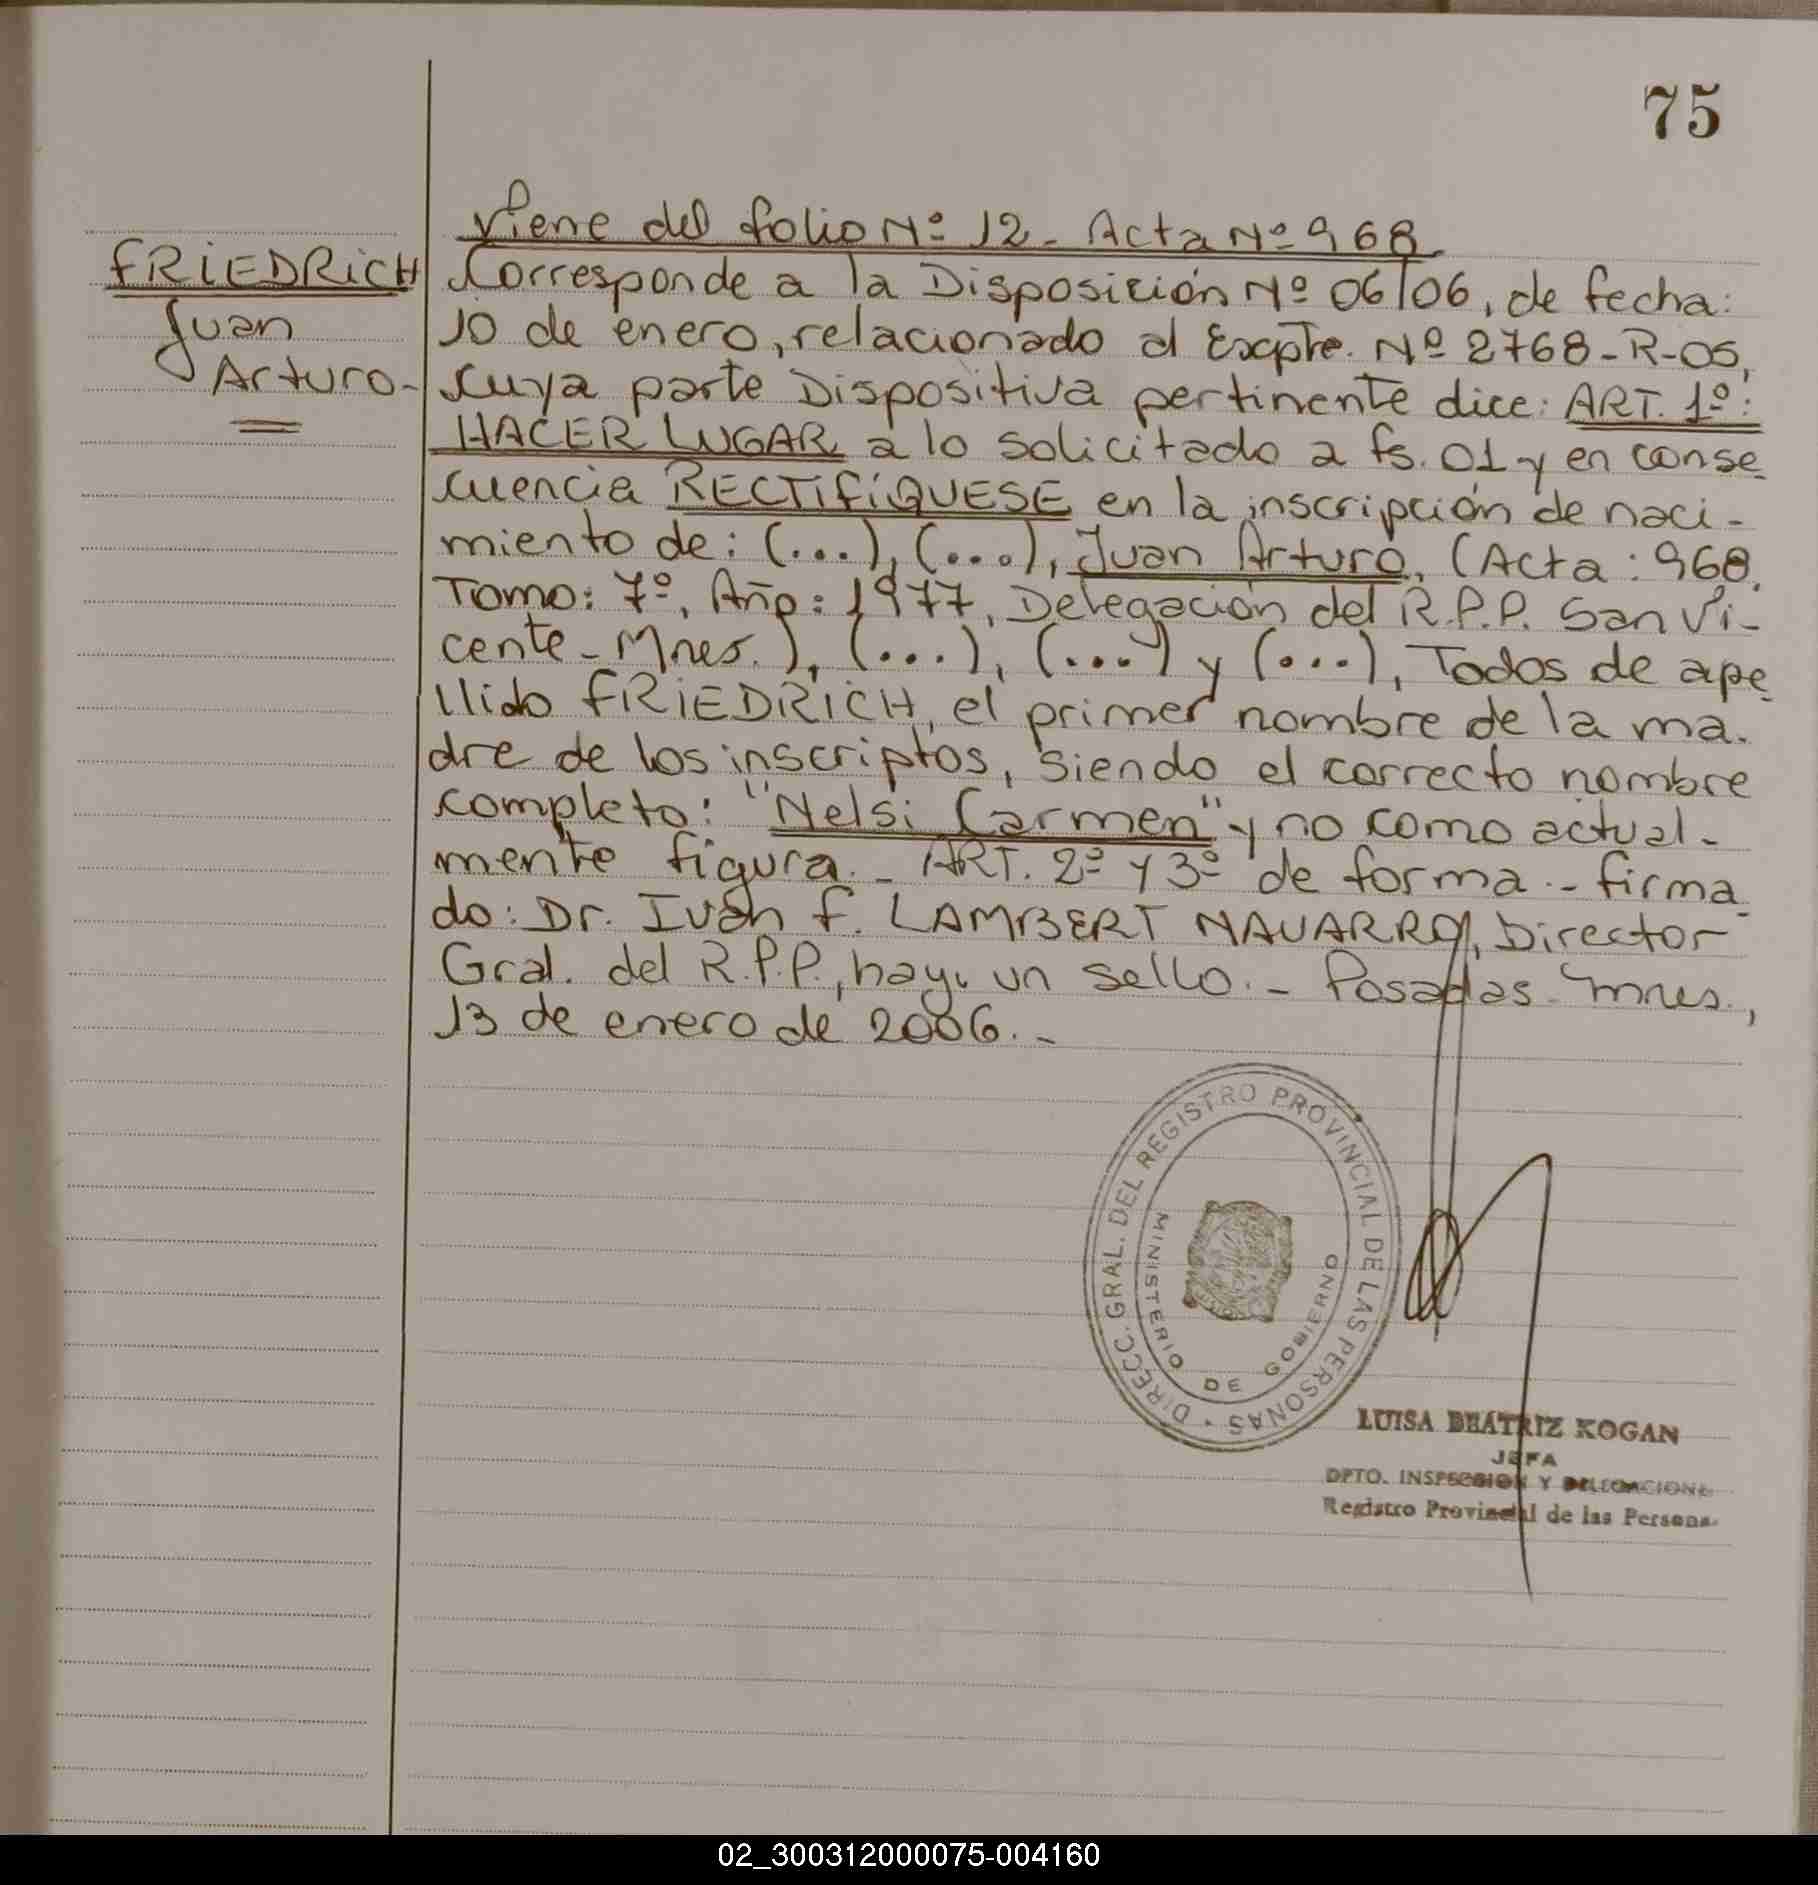 75
Viene del folio Nº 12 - Acta Nº 968
FRIEDRICH
Juan
Arturo-
Corresponde a la Disposición Nº 06/06, de fecha:
10 de enero, relacionado al Expte. Nº 2768-R-05,
cuya parte Dispositiva pertinente dice: ART. 1º:
HACER LUGAR a lo solicitado a fs. 01 y en conse
cuencia RECTIFÍQUESE en la inscripción de naci-
miento de: (...), (...), Juan Arturo, (Acta: 968,
Tomo: 7º, Año: 1977, Delegación del R.P.P. San Vi-
cente - Mnes.), (...), (...) y (...), Todos de ape
llido FRIEDRICH, el primer nombre de la ma-
dre de los inscriptos, siendo el correcto nombre
completo: "Nelsi Carmen" y no como actual-
mente figura.- ART. 2º y 3º de forma.- firma
do: Dr. Iván F. LAMBERT NAVARRO, Director
Gral. del R.P.P., hay un sello.- Posadas - Mnes.,
13 de enero de 2006.-
DIRECC. GRAL. DEL REGISTRO PROVINCIAL DE LAS PERSONAS
MINISTERIO DE GOBIERNO
LUISA BEATRIZ KOGAN
JEFA
DPTO. INSPECCION Y DELEGACIONE
Registro Provincial de las Persona
02_300312000075-004160